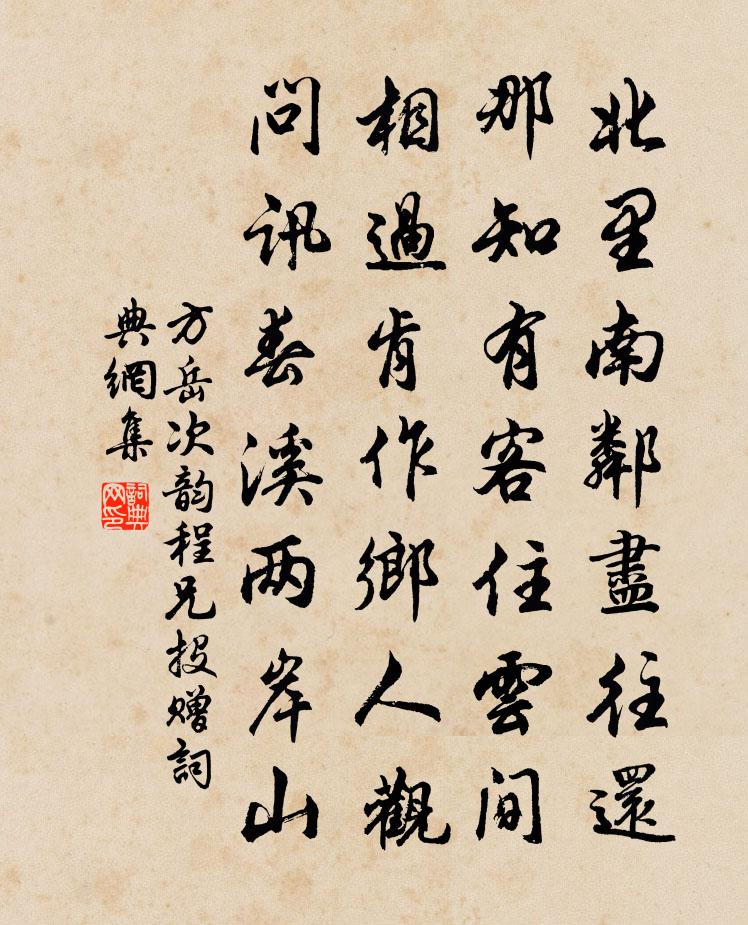 北里南鄰盡往還
那知有客住雲間
相過肯作鄉人觀
問訊春溪两岸山
方岳次韵程兄投赠詞
典網集
詞典网印